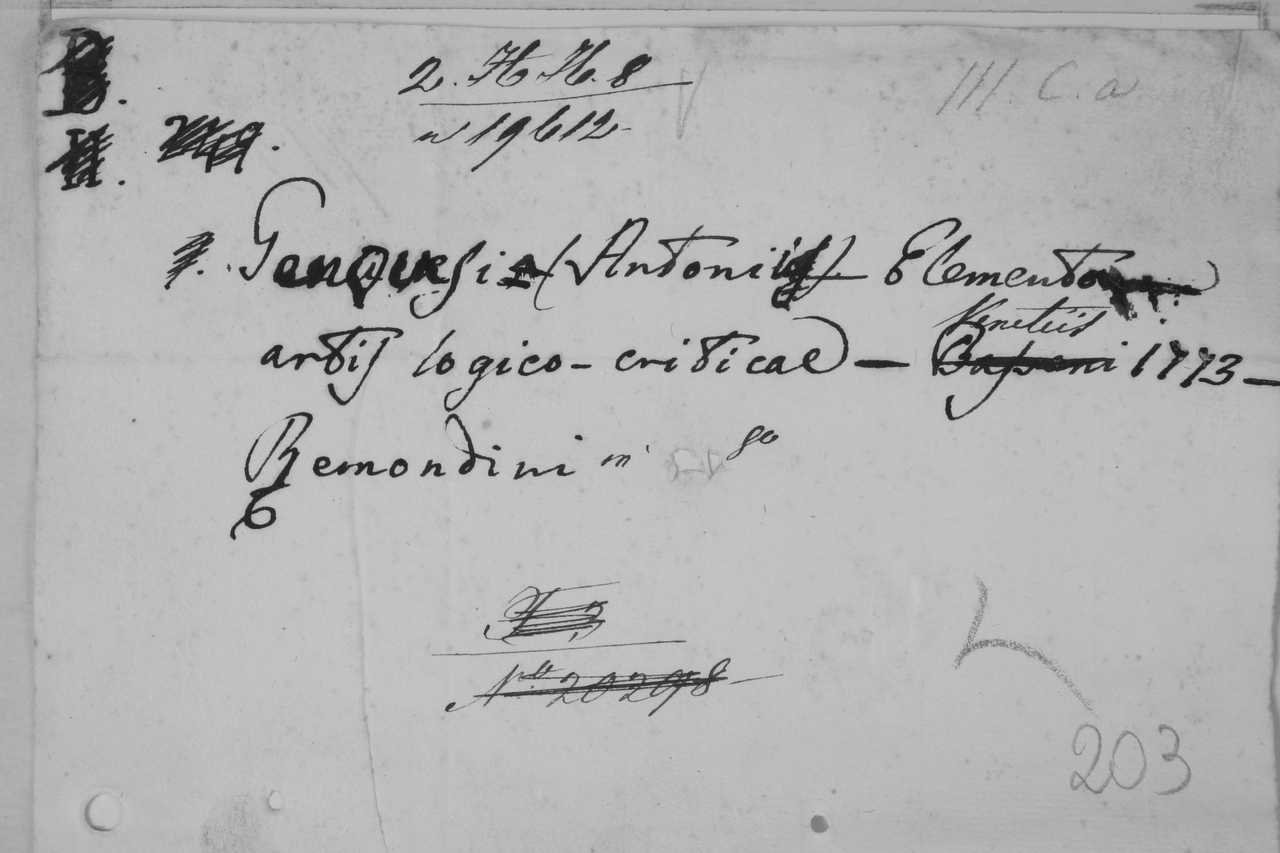 2. H H. 8
n 19612
III. C. a
Genuesi (Antonii) Elementa
artis logico-criticae — Venetiis 1773 —
Remondini in 8o
6
Nro 20298
203